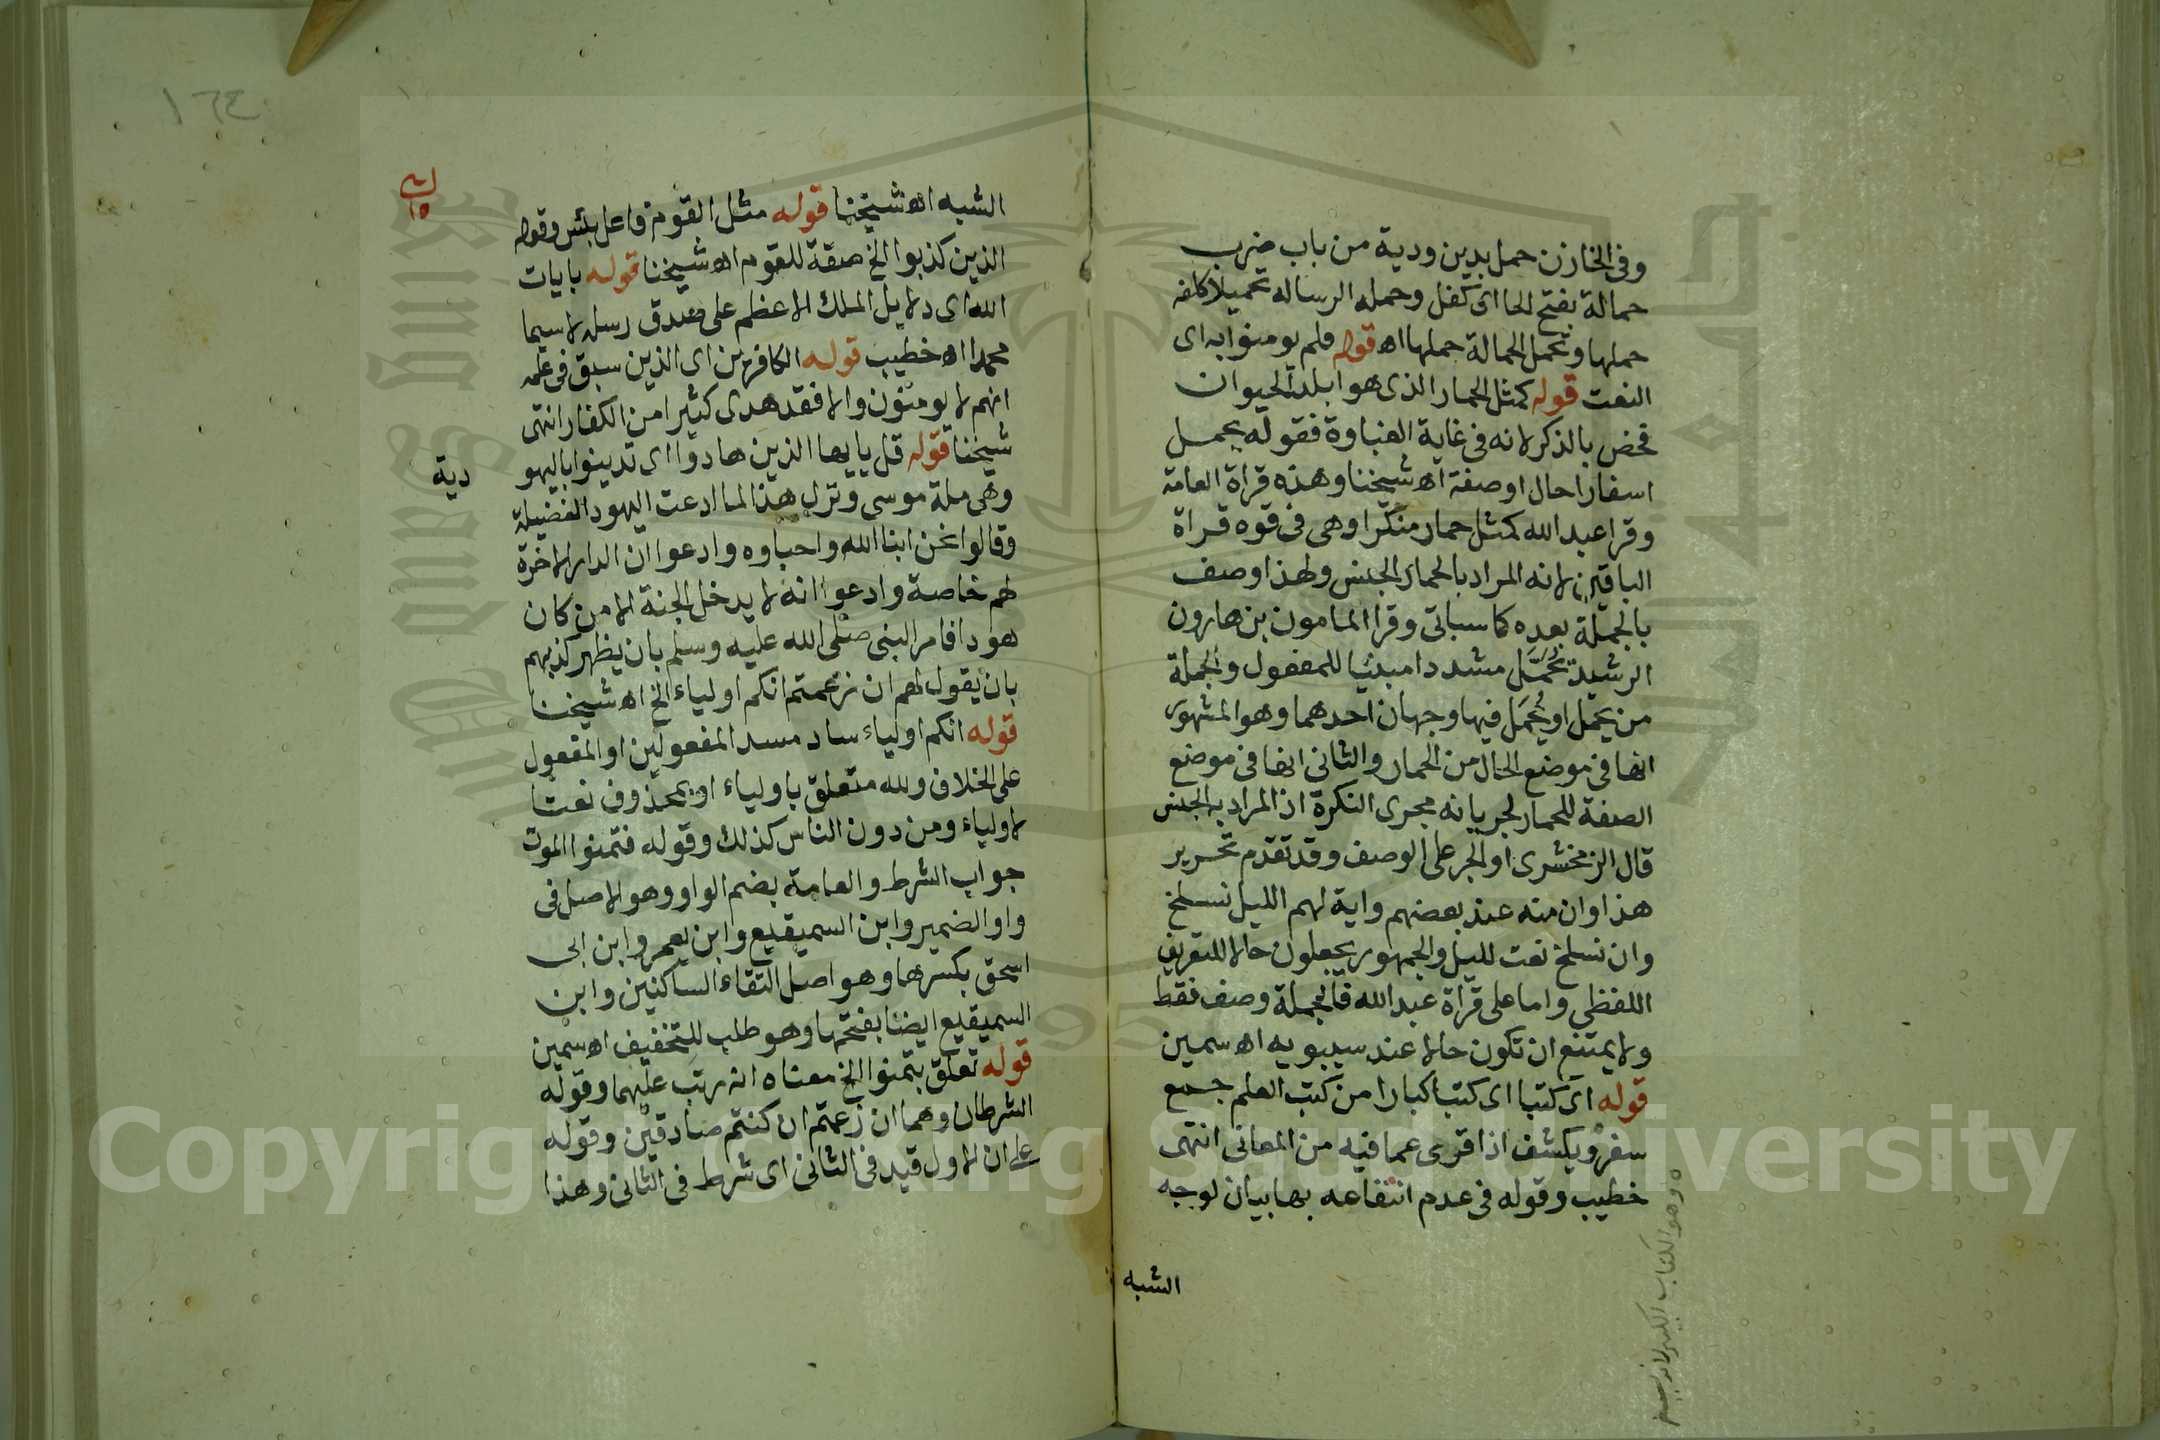 وفى الخازن حمل بدين ودية من باب ضرب
حمالة بفتح الحا اى كفل وحمله الرساله تحميلا كلفه
حملها وتحمل الحمالة حملها اه قوله فلم يومنوا به اى
النعت قوله كمثل الحمار الذى هو ابلد الحيوان
فخص بالذكر لانه فى غاية الغباوة فقوله يحمل
اسفارا حال او صفة اه شيخنا وهذه قراة العامة
وقرا عبد الله كمثل حمار منكرا وهى فى قوه قراة
الباقين لانه المراد بالحمار الجنس ولهذا وصف
بالجملة بعده كما سياتى وقرا المامون بن هارون
الرشيد يُحَمَّل مشددا مبنيا للمفعول والجملة
من يحمل او يُحَمَل فيها وجهان احدهما وهو المشهور
انها فى موضع الحال من الحمار والثانى انها فى موضع
الصفة للحمار لجريانه مجرى النكرة اذ المراد به الجنس
قال الزمخشرى او الجر على الوصف وقد تقدم تحرير
هذا وان منه عند بعضهم واية لهم الليل نسلخ
وان نسلخ نعت لليل والجمهور يجعلون حالا للتعريف
اللفظى واما على قراة عبد الله فالجملة وصف فقط
ولا يمتنع ان تكون حالا عند سيبويه اه سمين
قوله اى كتبا اى كتبا كبارا من كتب العلم جمع
سفر ويكشف اذا قرى عما فيه من المعانى انتهى
خطيب وقوله فى عدم انتفاعه بها بيان لوجه
الشبه
ه وهو الكتاب الكبير لانه يسفر
١٣٤
الشبه اه شيخنا قوله مثل القوم فاعل بئس وقوله
الذين كذبوا الخ صفة للقوم اه شيخنا قوله بايات
الله اى دلايل الملك الاعظم على صدق رسله لا سيما
محمدا اه خطيب قوله الكافرين اى الذين سبق فى علمه
انهم لا يومنون والا فقد هدى كثيرا من الكفار انتهى
شيخنا قوله قل يايها الذين هادوا اى تدينوا باليهو
دية
وهى ملة موسى ونزل هذا لما ادعت اليهود الفضيلة
وقالوا نحن ابنا الله واحباوه وادعوا ان الدار الاخرة
لهم خاصة وادعوا انه لا يدخل الجنة الا من كان
هودا فامر النبى صلى الله عليه وسلم بان يظهر كذبهم
بان يقول لهم ان زعمتم انكم اولياء الخ اه شيخنا
قوله انكم اولياء ساد مسد المفعولين او المفعول
على الخلاف ولله متعلق باولياء او بمحذوف نعتا
لاولياء ومن دون الناس كذلك وقوله فتمنوا الموت
جواب الشرط والعامة بضم الواو وهو الاصل فى
واو الضمير وابن السميقيع وابن يعمر وابن ابى
اسحق بكسرها وهو اصل التقاء الساكنين وابن
السميقيع ايضا بفتحها وهو طلب للتخفيف اه سمين
قوله تعلق بتمنوا الخ معناه انه رتب عليهما وقوله
الشرطان وهما ان زعمتم ان كنتم صادقين وقوله
على ان الاول قيد فى الثانى اى شرط فى الثانى وهذا
King Saud University
1957
Copyright © King Saud University